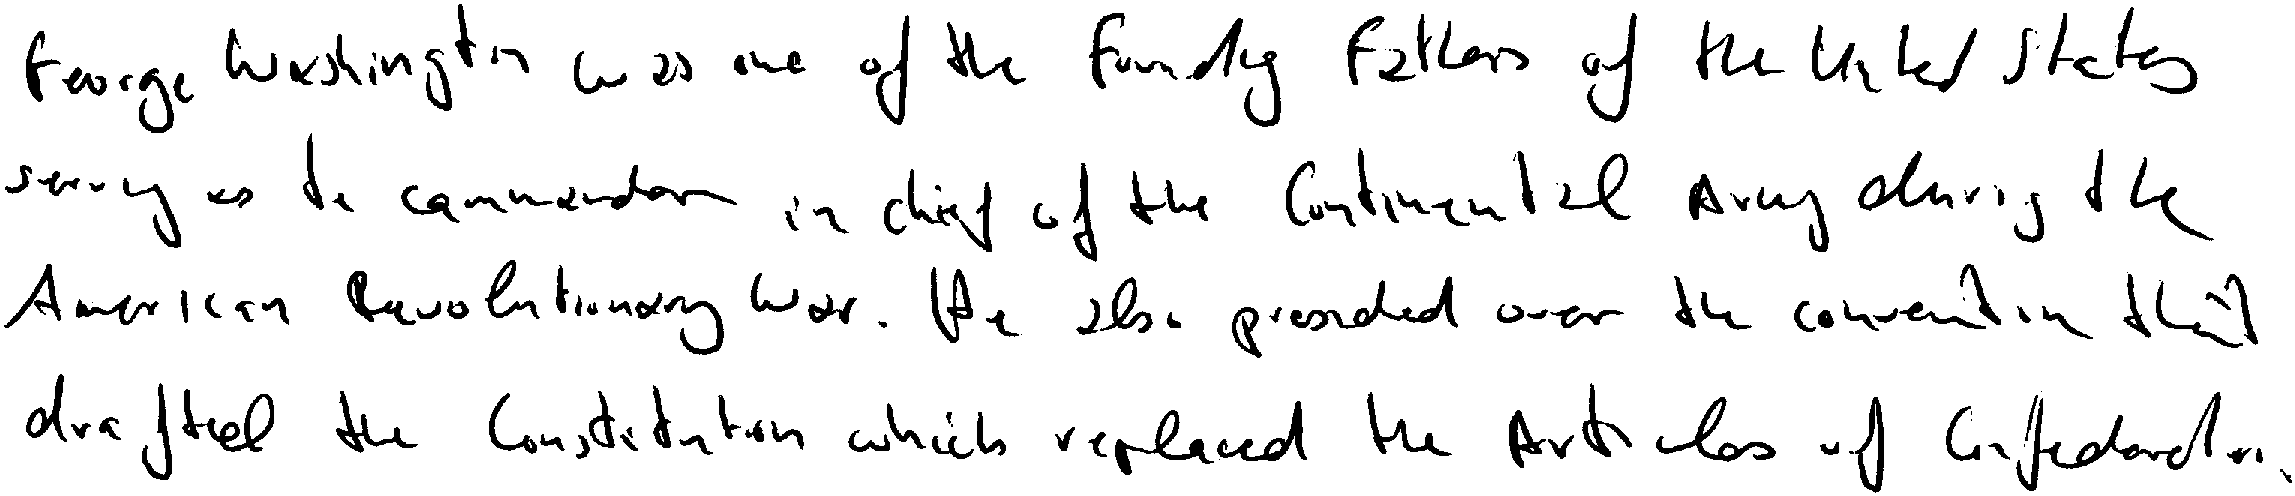 George Washington was one of the Founding Fathers of the United States
serving as the commander in chief of the Continental Army during the
American Revolutionary War. He also presided over the convention that
drafted the Constitution which replaced the Articles of Confederation.